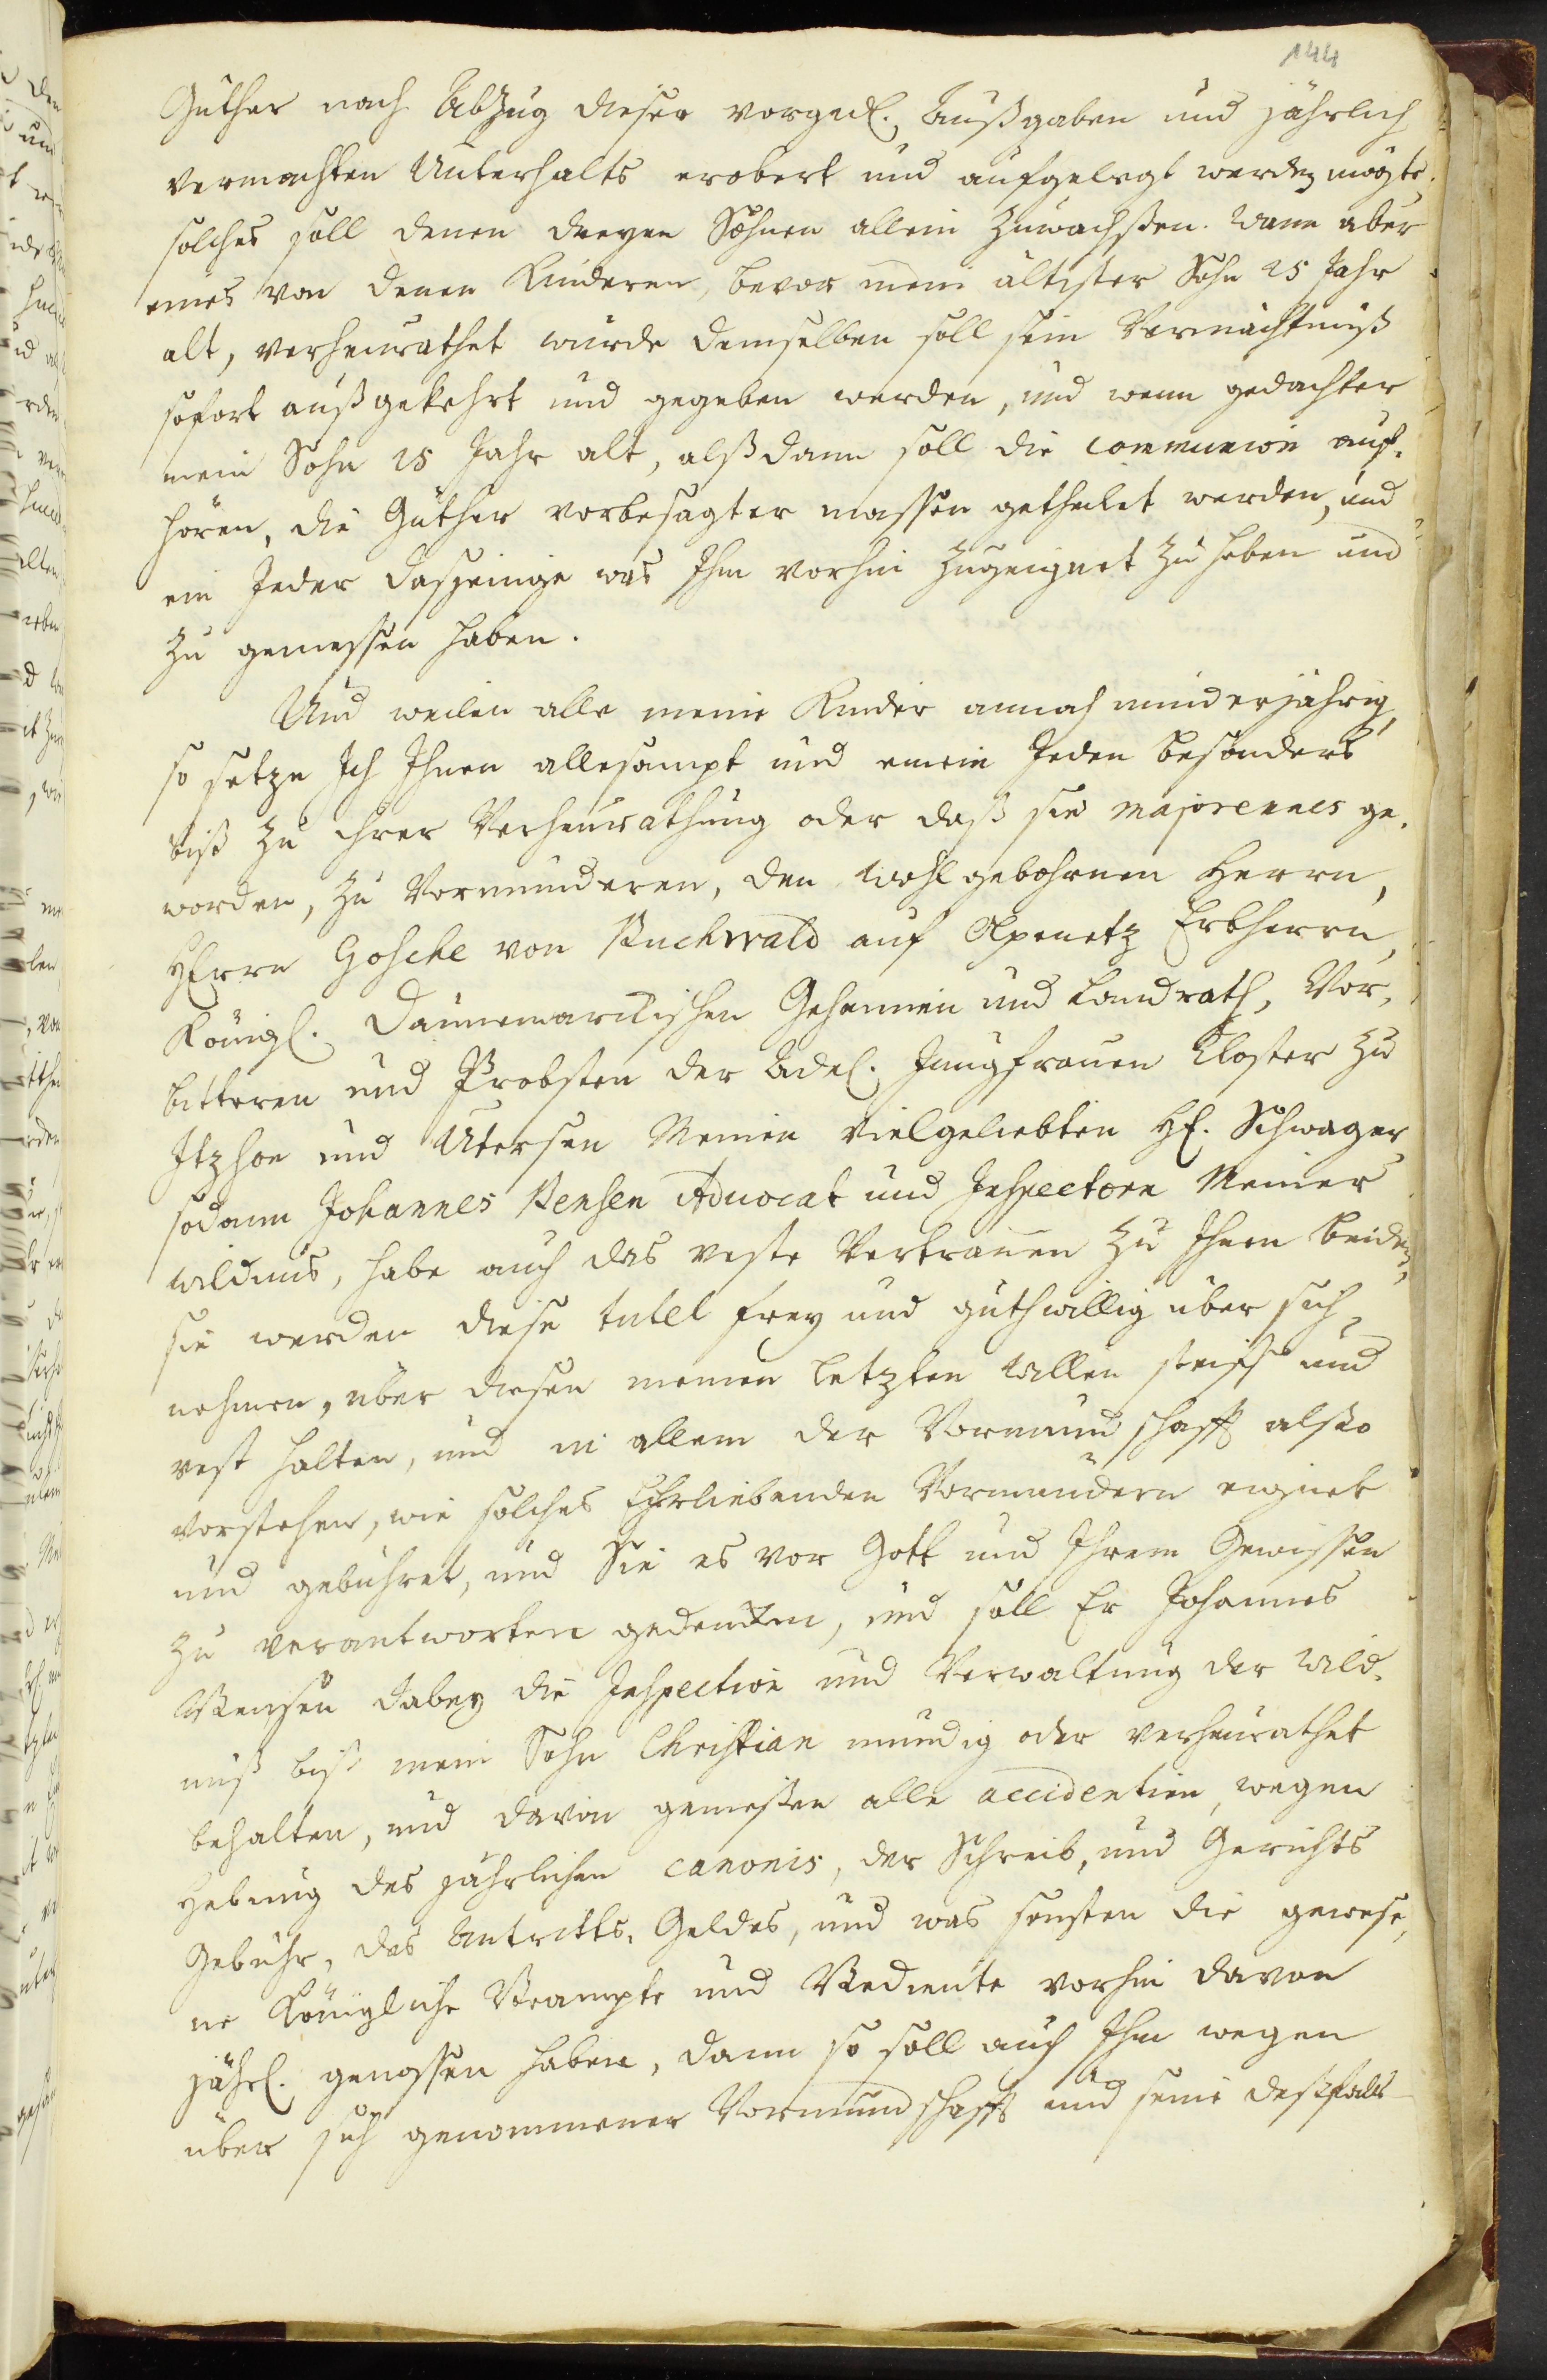 144
Güther nach Abzug dieser vorged. Außgaben und jährlich
vermachten Unterhalts erobert und aufgelegt werden mögte,
solches soll denen dreyen Söhnen allein zuwachsen. Wann aber
eines von denen Kinderen, bevor mein ältister Sohn 25 Jahr
alt, verheurathet würde demselben soll sein Vermächtniß
sofort außgekehrt und gegeben werden, und wenn gedachter
mein Sohn 25 Jahr alt, alßdann soll die communion auf-
hören, die Güther vorbesagter massen getheilet werden, und
ein Jeder dasjeinige was Ihm vorhin zugeignet zu heben und
zu geniessen haben.
Und weilen alle meine Kinder annoch minderjährig,
so setze Ich Ihnen allesampt und einem Jeden besonders
biß zu ihrer Verheurathung oder daß sie majorennes ge-
worden, zu Vormünderen, den Wohlgebohrnen Herrn,
Herrn Gosche von Buchwald auf Olpenetz Erbherrn,
Königl. Dännemarckischen Geheimen und Landrath, Vor-
bitteren und Probsten der Adel. Jungfrauen Kloster zu
Itzhoe und Utersen Meinen vielgeliebten H. Schwager,
sodann Johannes Bensen Advocat und Inspectorn Meiner
Wildnis, habe auch das veste Vertrauen zu Ihnen beiden,
sie werden diese tutel frey und guthwillig über sich
nehmen, über diesen meinen letzten Willen steiff und
vest halten, und in allem der Vormundschafft alßo
vorstehen, wie solches Ehrliebenden Vormündern eignet
und gebühret, und Sie es vor Gott und Ihrem Gewissen
zu verantworten gedencken, und soll Er Johannes
Bensen dabey die Inspection und Verwaltung der Wild-
niß biß mein Sohn Christian mündig oder verheurathet
behalten, und davon geniessen alle accidentien, wegen
Hebung des jährlichen canonis, der Schreib, und Gerichts
Gebühr, des Antritts-Geldes, und was sonsten die gewese-
ne Königliche Beampte und Bediente vorhin davon
jährl. genossen haben, dann so soll auch Ihm wegen
über sich genommener Vormundschafft und seine deßfals